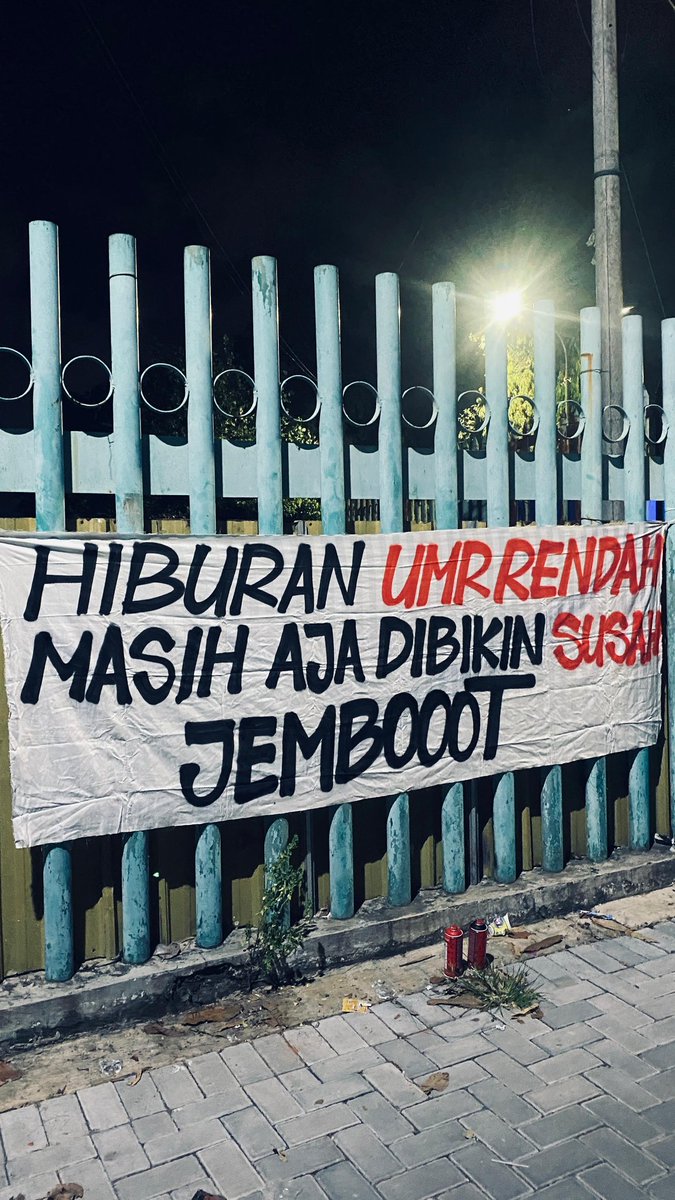 HIBURAN UMR RENDAH
MASIH AJA DIBIKIN SUSAH
JEMBOOOT